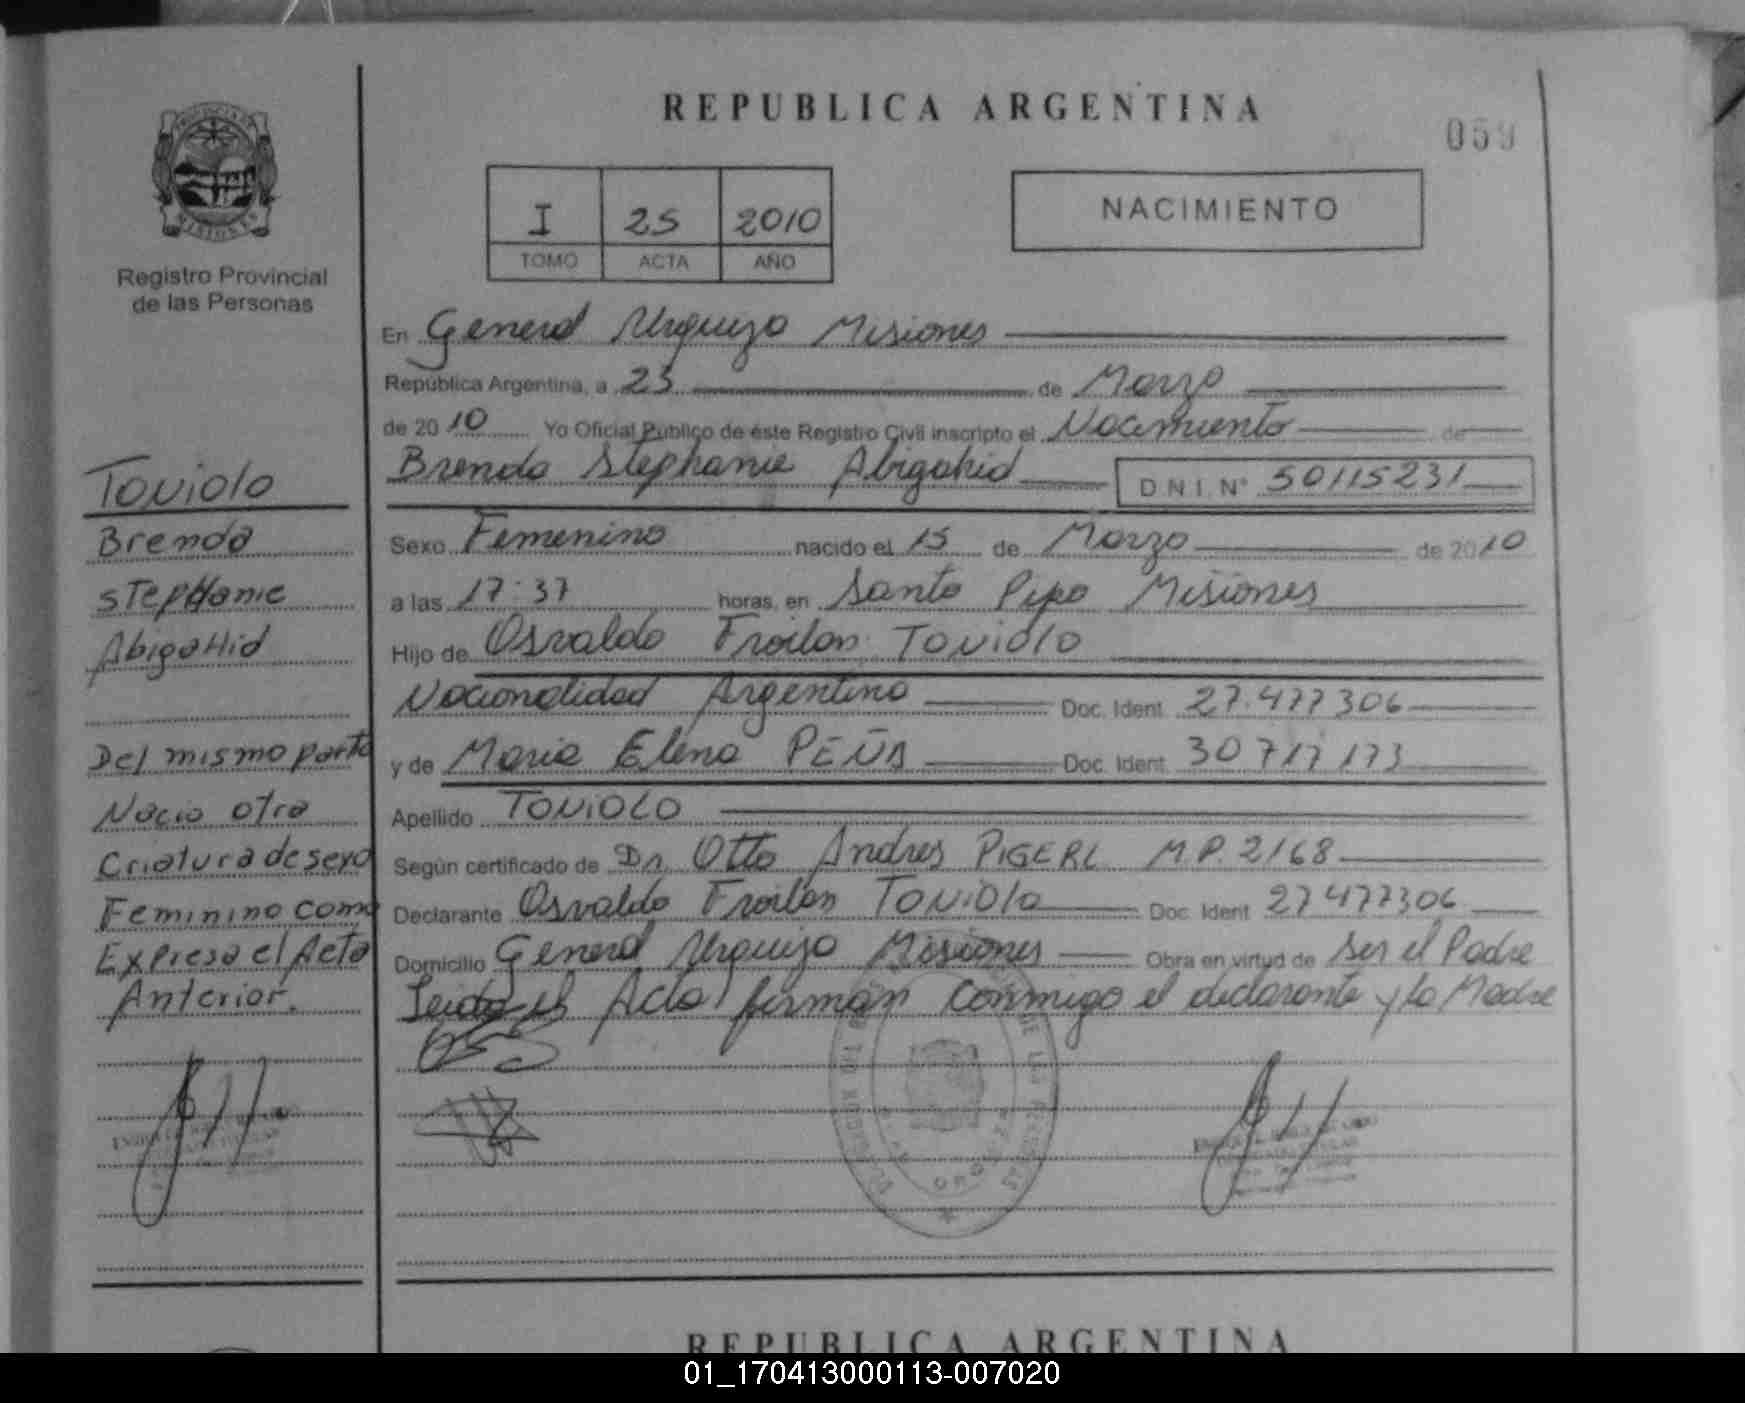 REPUBLICA ARGENTINA
059
PROVINCIA DE
MISIONES
Registro Provincial
de las Personas
I 25 2010
TOMO ACTA AÑO
NACIMIENTO
En General Urquiza Misiones
República Argentina, a 23 de Marzo
de 2010 Yo Oficial Público de éste Registro Civil inscripto el Nacimiento de
Brenda Stephanie Abigahid D.N.I. N° 50115231
Sexo Femenino nacido el 15 de Marzo de 2010
a las 17:37 horas, en Santo Pipo Misiones
Hijo de Osvaldo Froilan TONIOLO
Nacionalidad Argentina Doc. Ident. 27.477306
y de Maria Elena PEÑA Doc. Ident. 30717173
Apellido TONIOLO
Según certificado de Dr. Otto Andres PIGERL M.P. 2168
Declarante Osvaldo Froilan TONIOLO Doc. Ident. 27477306
Domicilio General Urquiza Misiones Obra en virtud de Ser el Padre
Leida el Acta firman conmigo el declarante y la Madre
Toniolo
Brenda
STepHanie
AbigaHid
Del mismo parto
Nacio otra
Criatura de sexo
Feminino como
Expresa el Acta
Anterior.
REPUBLICA ARGENTINA
01_170413000113-007020